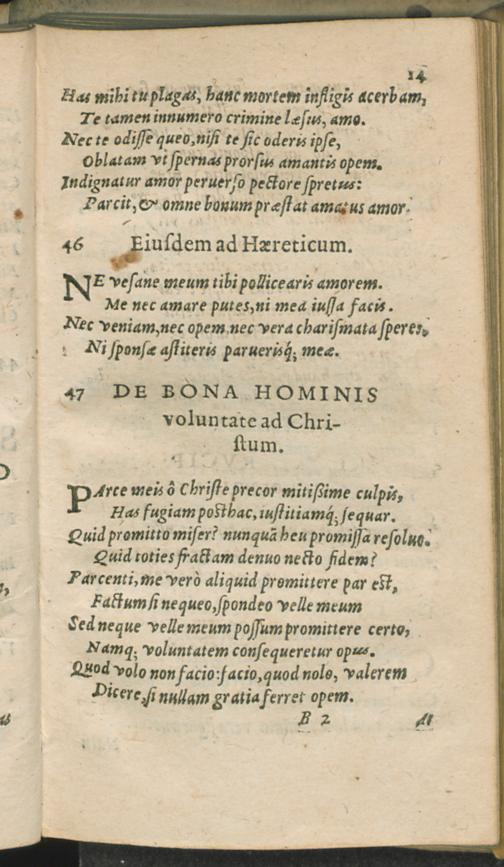 14
Has mihi tu plagas, hanc mortem infligis acerbam,
Te tamen innumero crimine læsus, amo.
Nec te odisse queo, nisi te sic oderis ipse,
Oblatam vt spernas prorsus amantis opem.
Indignatur amor peruerso pectore spretus:
Parcit, & omne bonum præstat amatus amor.
46 Eiusdem ad Hæreticum.
NE vesane meum tibi pollicearis amorem.
Me nec amare putes, ni mea iussa facis.
Nec veniam, nec opem, nec vera charismata speres,
Ni sponsæ astiteris parueriśq; meæ.
47 DE BONA HOMINIS
voluntate ad Chri-
stum.
PArce meis ô Christe precor mitißime culpis,
Has fugiam posthac, iustitiamq́; sequar.
Quid promitto miser? nunquã heu promissa resoluo.
Quid toties fractam denuo necto fidem?
Parcenti, me verò aliquid promittere par est,
Factum si nequeo, spondeo velle meum
Sed neque velle meum possum promittere certo,
Namq; voluntatem consequeretur opus.
Quod volo non facio: facio, quod nolo, valerem
Dicere, si nullam gratia ferret opem.
B 2 At